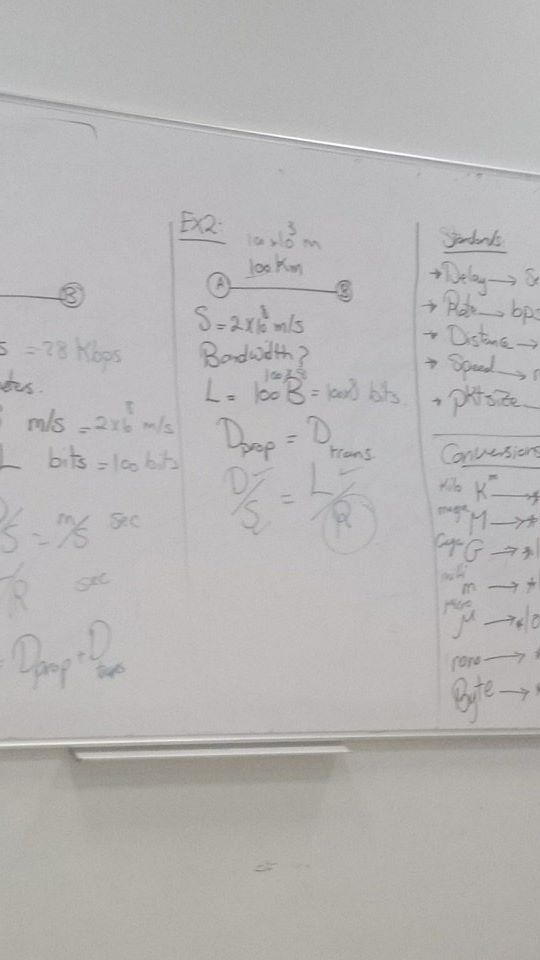 B
= 28 Kbps
m/s = 2x10^8 m/s
L bits = 100 bits
D/S = m/S sec
/R sec
= Dprop + Dtrans
EX2:
100x10^3 m
100 Km
A B
S = 2x10^8 m/s
Bandwidth?
100x8
L = 100B = 100x8 bits.
Dprop = Dtrans
D/S = L/R
Standards
→ Delay → Se
→ Rate → bps
→ Distance →
→ Speed →
→ pktsize
Conversions
Kilo K →
mega M → *
Giga G → *1
milli m → *1
micro μ → *10
nano → *
Byte → *